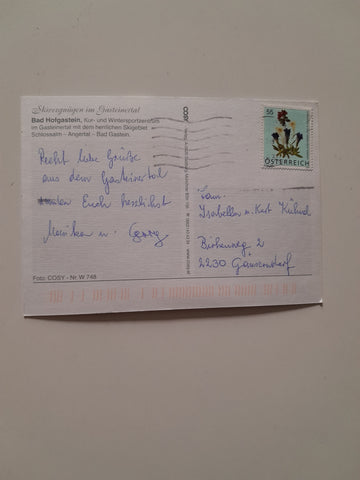 Skivergnügen im Gasteinertal
Bad Hofgastein, Kur- und Wintersportzentrum
im Gasteinertal mit dem herrlichen Skigebiet
Schlossalm - Angertal - Bad Gastein.
Recht liebe Grüße
aus dem Gasteinertal
senden Euch herzlichst
Monika u. Georg
Foto: COSY - Nr. W 748
COSY
55
ÖSTERREICH
Fam.
Isabella u. Kurt
Birkenweg 2
2230 Gänserndorf